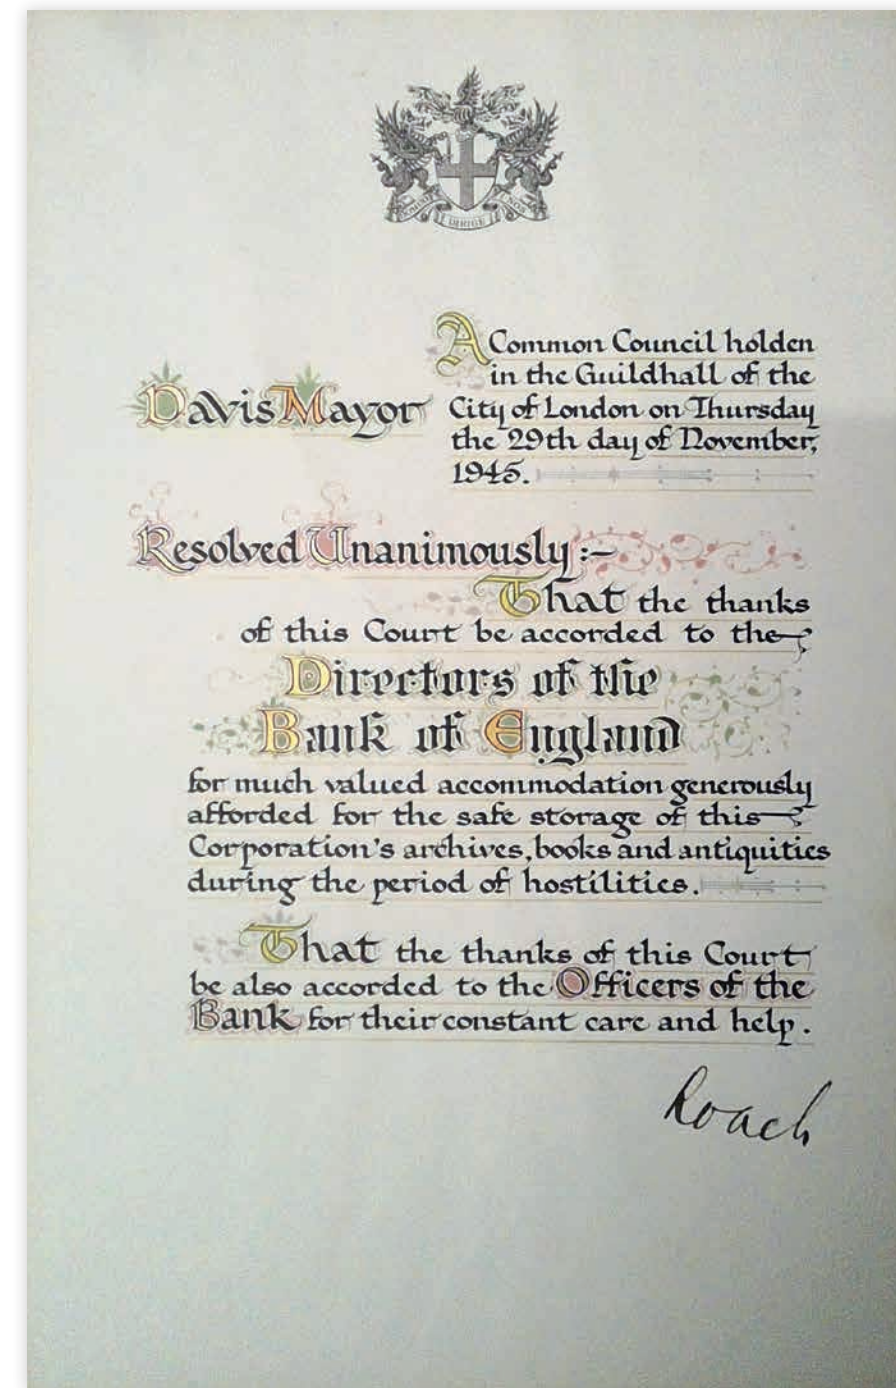 DOMINE DIRIGE NOS
A Common Council holden
in the Guildhall of the
Davis Mayor City of London on Thursday
the 29th day of November,
1945.
Resolved Unanimously :-
That the thanks
of this Court be accorded to the
Directors of the
Bank of England
for much valued accommodation generously
afforded for the safe storage of this
Corporation's archives, books and antiquities
during the period of hostilities.
That the thanks of this Court
be also accorded to the Officers of the
Bank for their constant care and help.
Roach